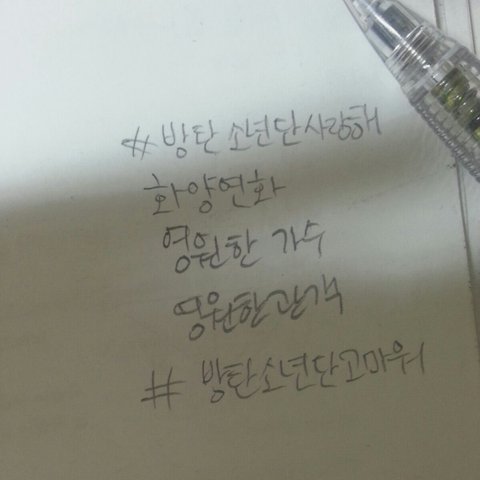 #방탄소년단사랑해
화양연화
영원한 가수
영원한관객
# 방탄소년단고마워